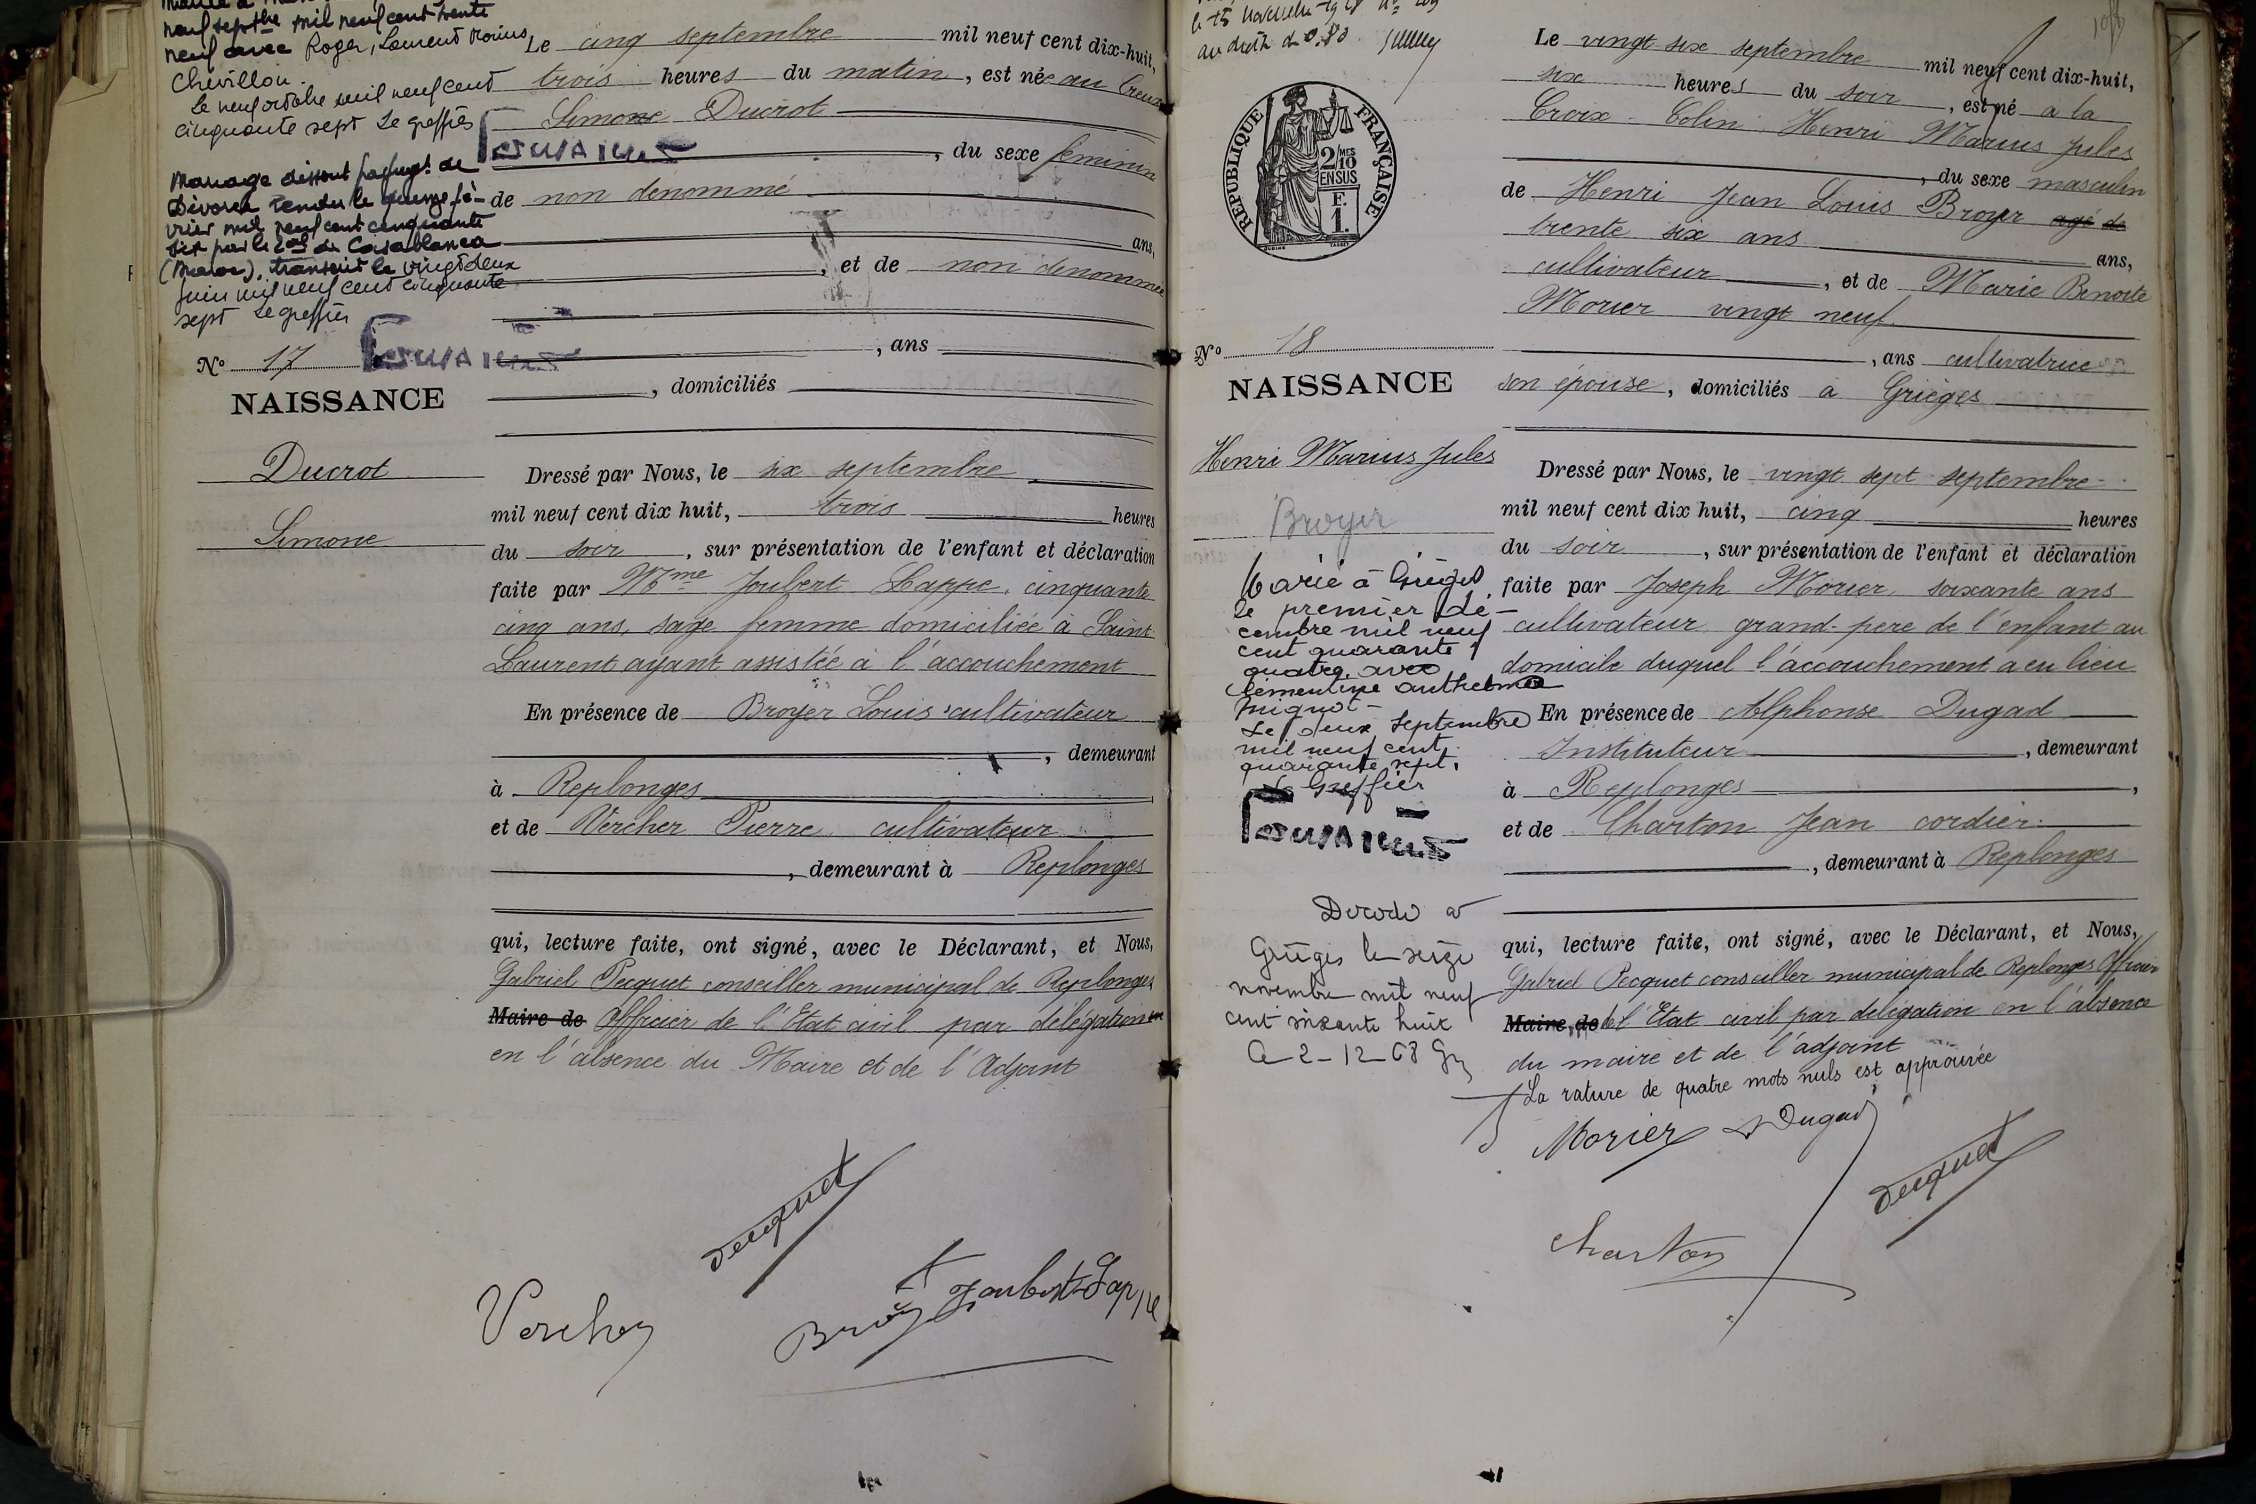 neuf septbre mil neuf cent trente
neuf avec Roger, Laurent Marius
Chevillon.
Le neuf octobre mil neuf cent
cinquante sept Le greffier
Mariage dissout par jugt de
Divorce rendu le quinze fé-
vrier mil neuf cent cinquante
six par le Cal de Casablanca
(Maroc), transcrit le vingt deux
juin mil neuf cent cinquante
sept Le greffier
No 17
NAISSANCE
Ducrot
Simone
Le cinq septembre mil neuf cent dix-huit,
trois heures du matin, est née au Creux
Simone Ducrot
, du sexe féminin
de non dénommé
ans,
, et de non dénommée
, ans
, domiciliés
Dressé par Nous, le six septembre
mil neuf cent dix huit, trois heures
du soir, sur présentation de l'enfant et déclaration
faite par Mme Joubert Lappe, cinquante
cinq ans, sage femme domiciliée à Saint
Laurent ayant assistée à l'accouchement
En présence de Broyer Louis cultivateur
, demeurant
à Replonges
et de Vercher Pierre cultivateur
, demeurant à Replonges
qui, lecture faite, ont signé, avec le Déclarant, et Nous,
Gabriel Pecquet conseiller municipal de Replonges
Maire de Officier de l'Etat civil par délégation
en l'absence du Maire et de l'Adjoint
Pecquet
Joubert Lappe
Vercher
Broyer
le 15 novembre 1918 No 209
au droit de 0.80
REPUBLIQUE FRANÇAISE
2/MES
10
EN SUS
F.
1.
No 18
NAISSANCE
Henri Marius Jules
Broyer
Marié à Grièges
le premier dé-
cembre mil neuf
cent quarante
quatre, avec
Clémentine Anthelmea
Mignot-
Le deux Septembre
mil neuf cent
quarante sept.
Le Greffier
Décédé à
Grièges le seize
novembre mil neuf
cent soixante huit
A 2-12-68
Le vingt-six septembre mil neuf cent dix-huit,
six heures du soir, est né à la
Croix-Colin Henri Marius Jules
, du sexe masculin
de Henri Jean Louis Broyer agé de
trente six ans ans,
cultivateur, et de Marie Benoite
Morier vingt neuf
, ans cultivatrice
son épouse, domiciliés à Grièges
Dressé par Nous, le vingt sept septembre
mil neuf cent dix huit, cinq heures
du soir, sur présentation de l'enfant et déclaration
faite par Joseph Morier, soixante ans
cultivateur grand-père de l'enfant au
domicile duquel l'accouchement a eu lieu
En présence de Alphonse Dugad
Instituteur, demeurant
à Replonges,
et de Charton Jean cordier
, demeurant à Replonges
qui, lecture faite, ont signé, avec le Déclarant, et Nous,
Gabriel Pecquet conseiller municipal de Replonges Officier
Maire, de de l'Etat civil par délégation en l'absence
du maire et de l'adjoint
La rature de quatre mots nuls est approuvée
Morier Dugad
Pecquet
Charton